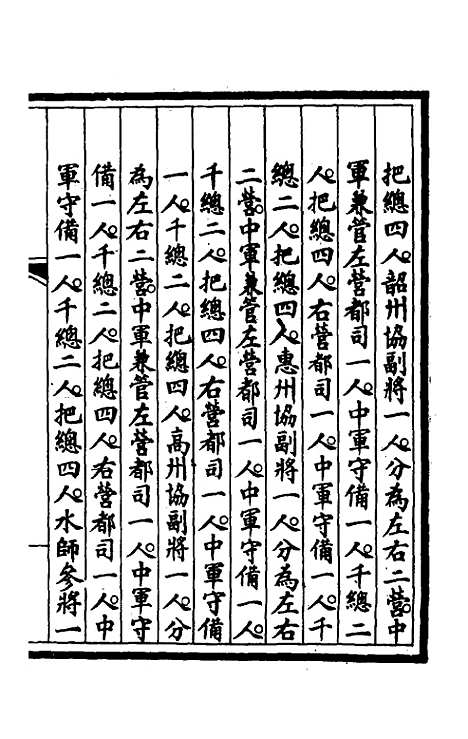 把總四人韶州協副將一人分為左右二營中
軍兼管左營都司一人中軍守備一人千總二
人把總四人右營都司一人中軍守備一人千
總二人把總四人惠州協副將一人分為左右
二營中軍兼管左營都司一人中軍守備一人
千總二人把總四人右營都司一人中軍守備
一人千總二人把總四人高州協副將一人分
為左右二營中軍兼管左營都司一人中軍守
備一人千總二人把總四人右營都司一人中
軍守備一人千總二人把總四人水師參將一